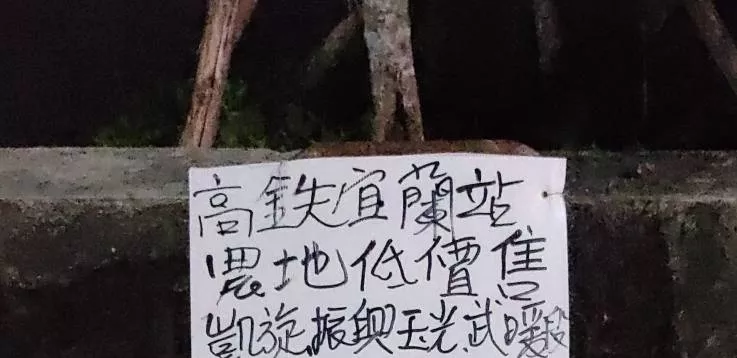 高鉄宜蘭站
農地低價售
凱旋.振興.玉光.武暖段